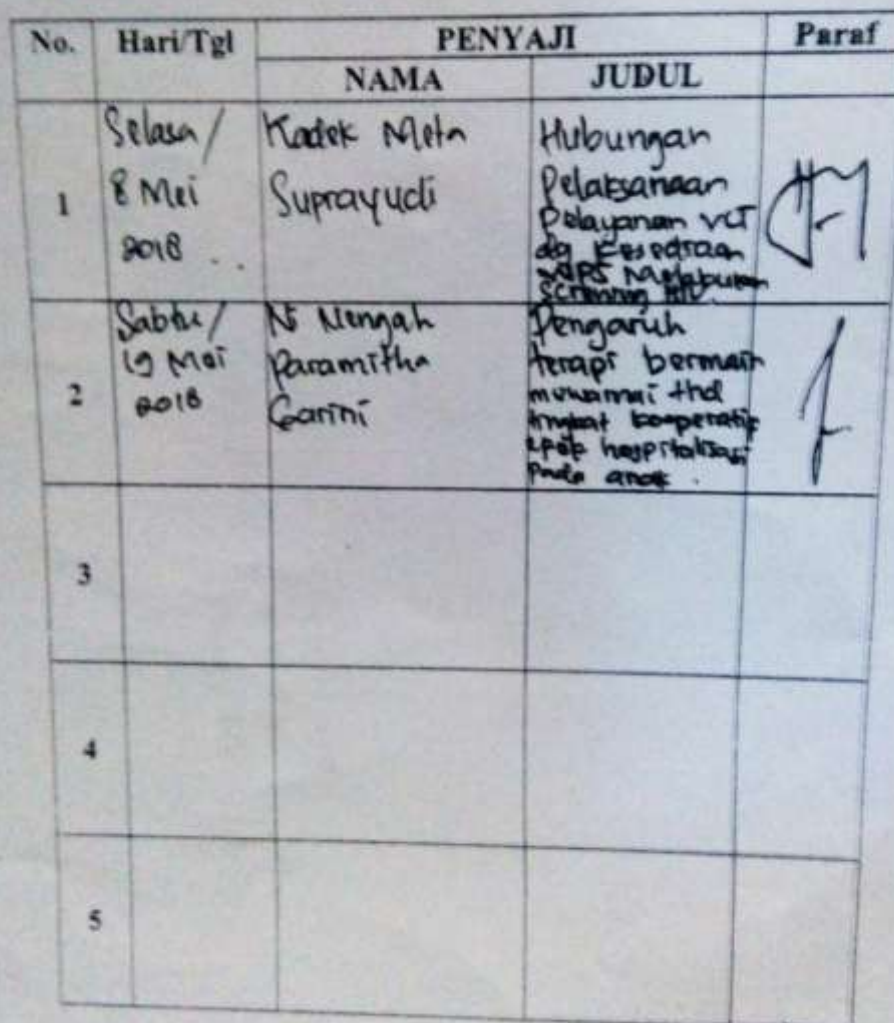 No. Hari/Tgl PENYAJI Paraf
NAMA JUDUL
1
Selasa /
8 Mei
2018
Kadek Meta
Suprayudi
Hubungan
Pelaksanaan
Pelayanan VCT
dg Kesediaan
WBPS Melakukan
Screening HIV.
2
Sabtu /
19 Mei
2018
Ni Nengah
Paramitha
Garini
Pengaruh
terapi bermain
mewarnai thd
tingkat kooperatif
hospitalisasi
pada anak.
3
4
5